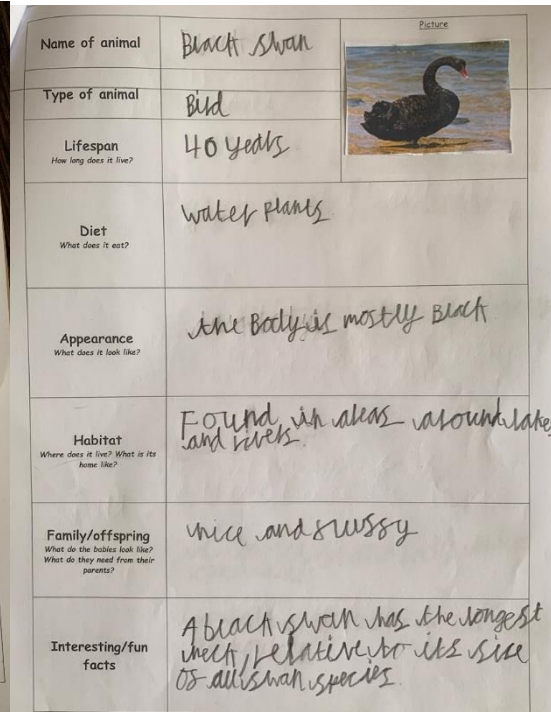 Picture
Name of animal
Black swan
Type of animal
Bird
Lifespan
How long does it live?
40 years
Diet
What does it eat?
water plants
Appearance
What does it look like?
the Body is mostly Black
Habitat
Where does it live? What is its
home like?
Found in areas around lake
and rivers.
Family/offspring
What do the babies look like?
What do they need from their
parents?
nice and
Interesting/fun
facts
A black swan has the longest
neck, relative to its size
of all swan species.